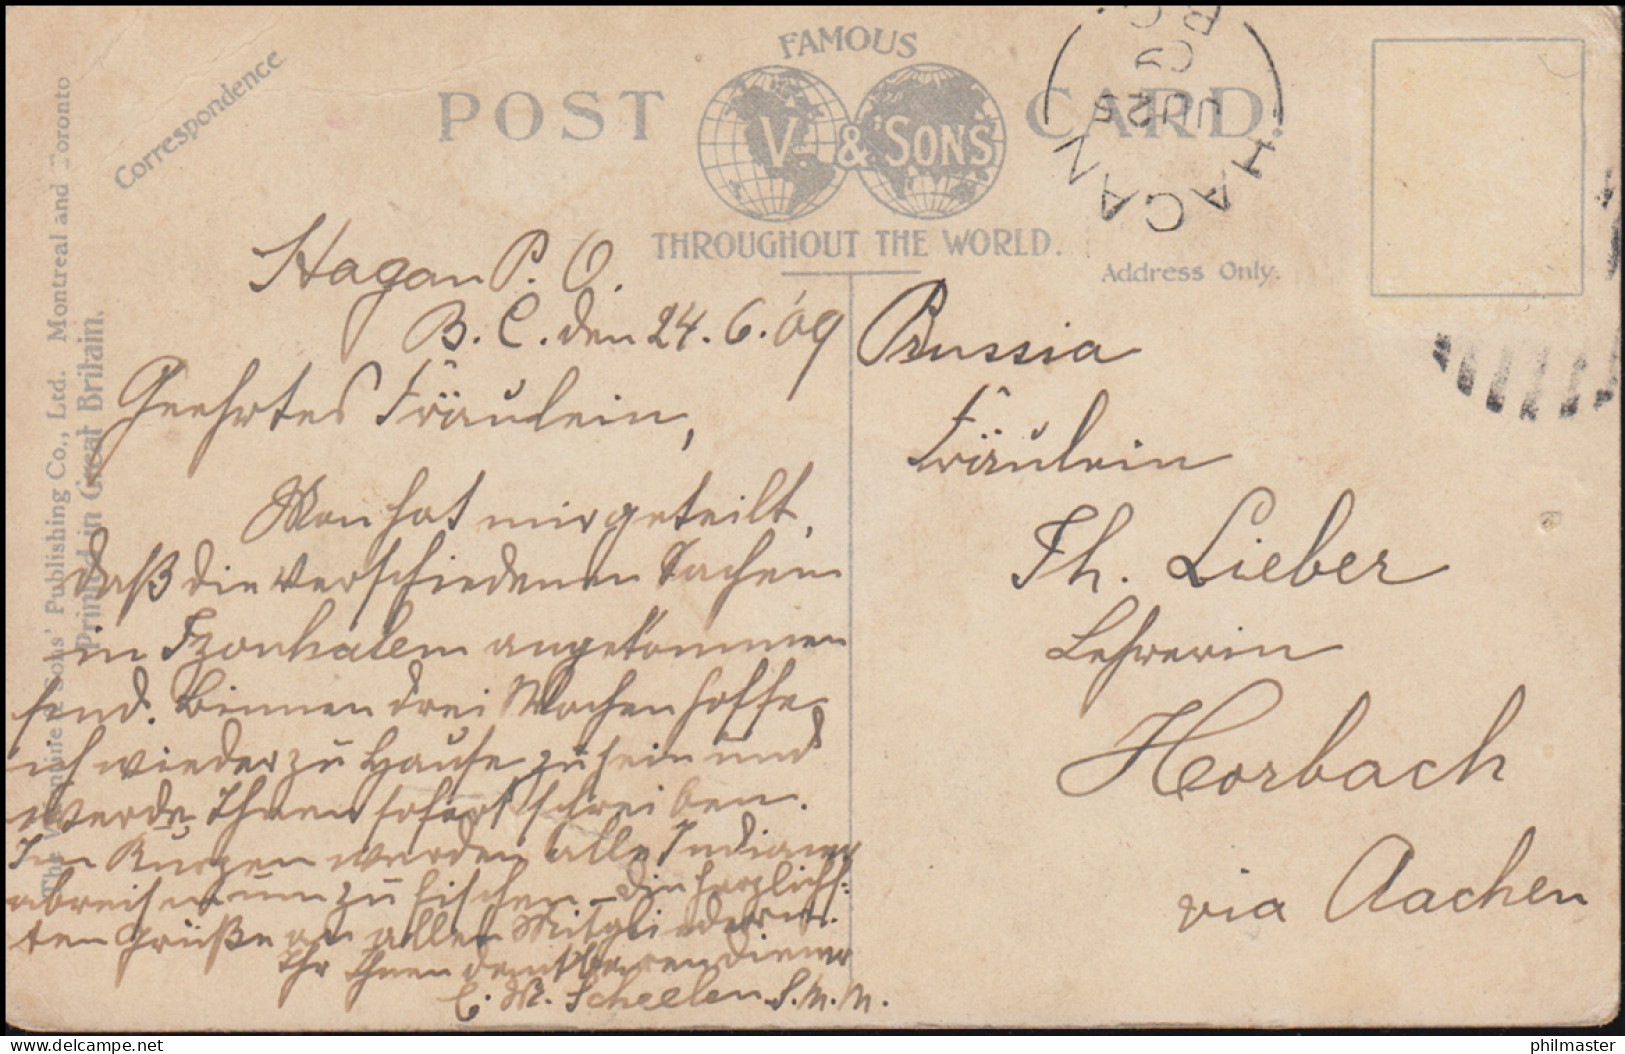 Correspondence.
The Valentine & Sons' Publishing Co., Ltd. Montreal and Toronto
Printed in Great Britain.
FAMOUS
POST CARD.
V & SONS
THROUGHOUT THE WORLD.
Address Only.
HAGAN
JU 25
09
B.C.
Hagan P. O.
B. C. den 24. 6. 09
Geehrtes Fräulein,
Man hat mir geteilt,
daß die verschiedenen Sachen
in angekommen
sind. Binnen drei Wochen hoffe
ich wieder zu Hause zu sein und
werde Ihnen sofort schreiben.
Im Kurzen werden alle Indianer
abreisen um zu fischen. Die herzlich-
sten Grüße an alle Mitglieder u.
Ihr Ihnen dankbaren diener
C. M. Scheelen S.M.M.
Prussia
Fräulein
Th. Lieber
Lehrerin
Horbach
via Aachen
philmaster
delcampe.net